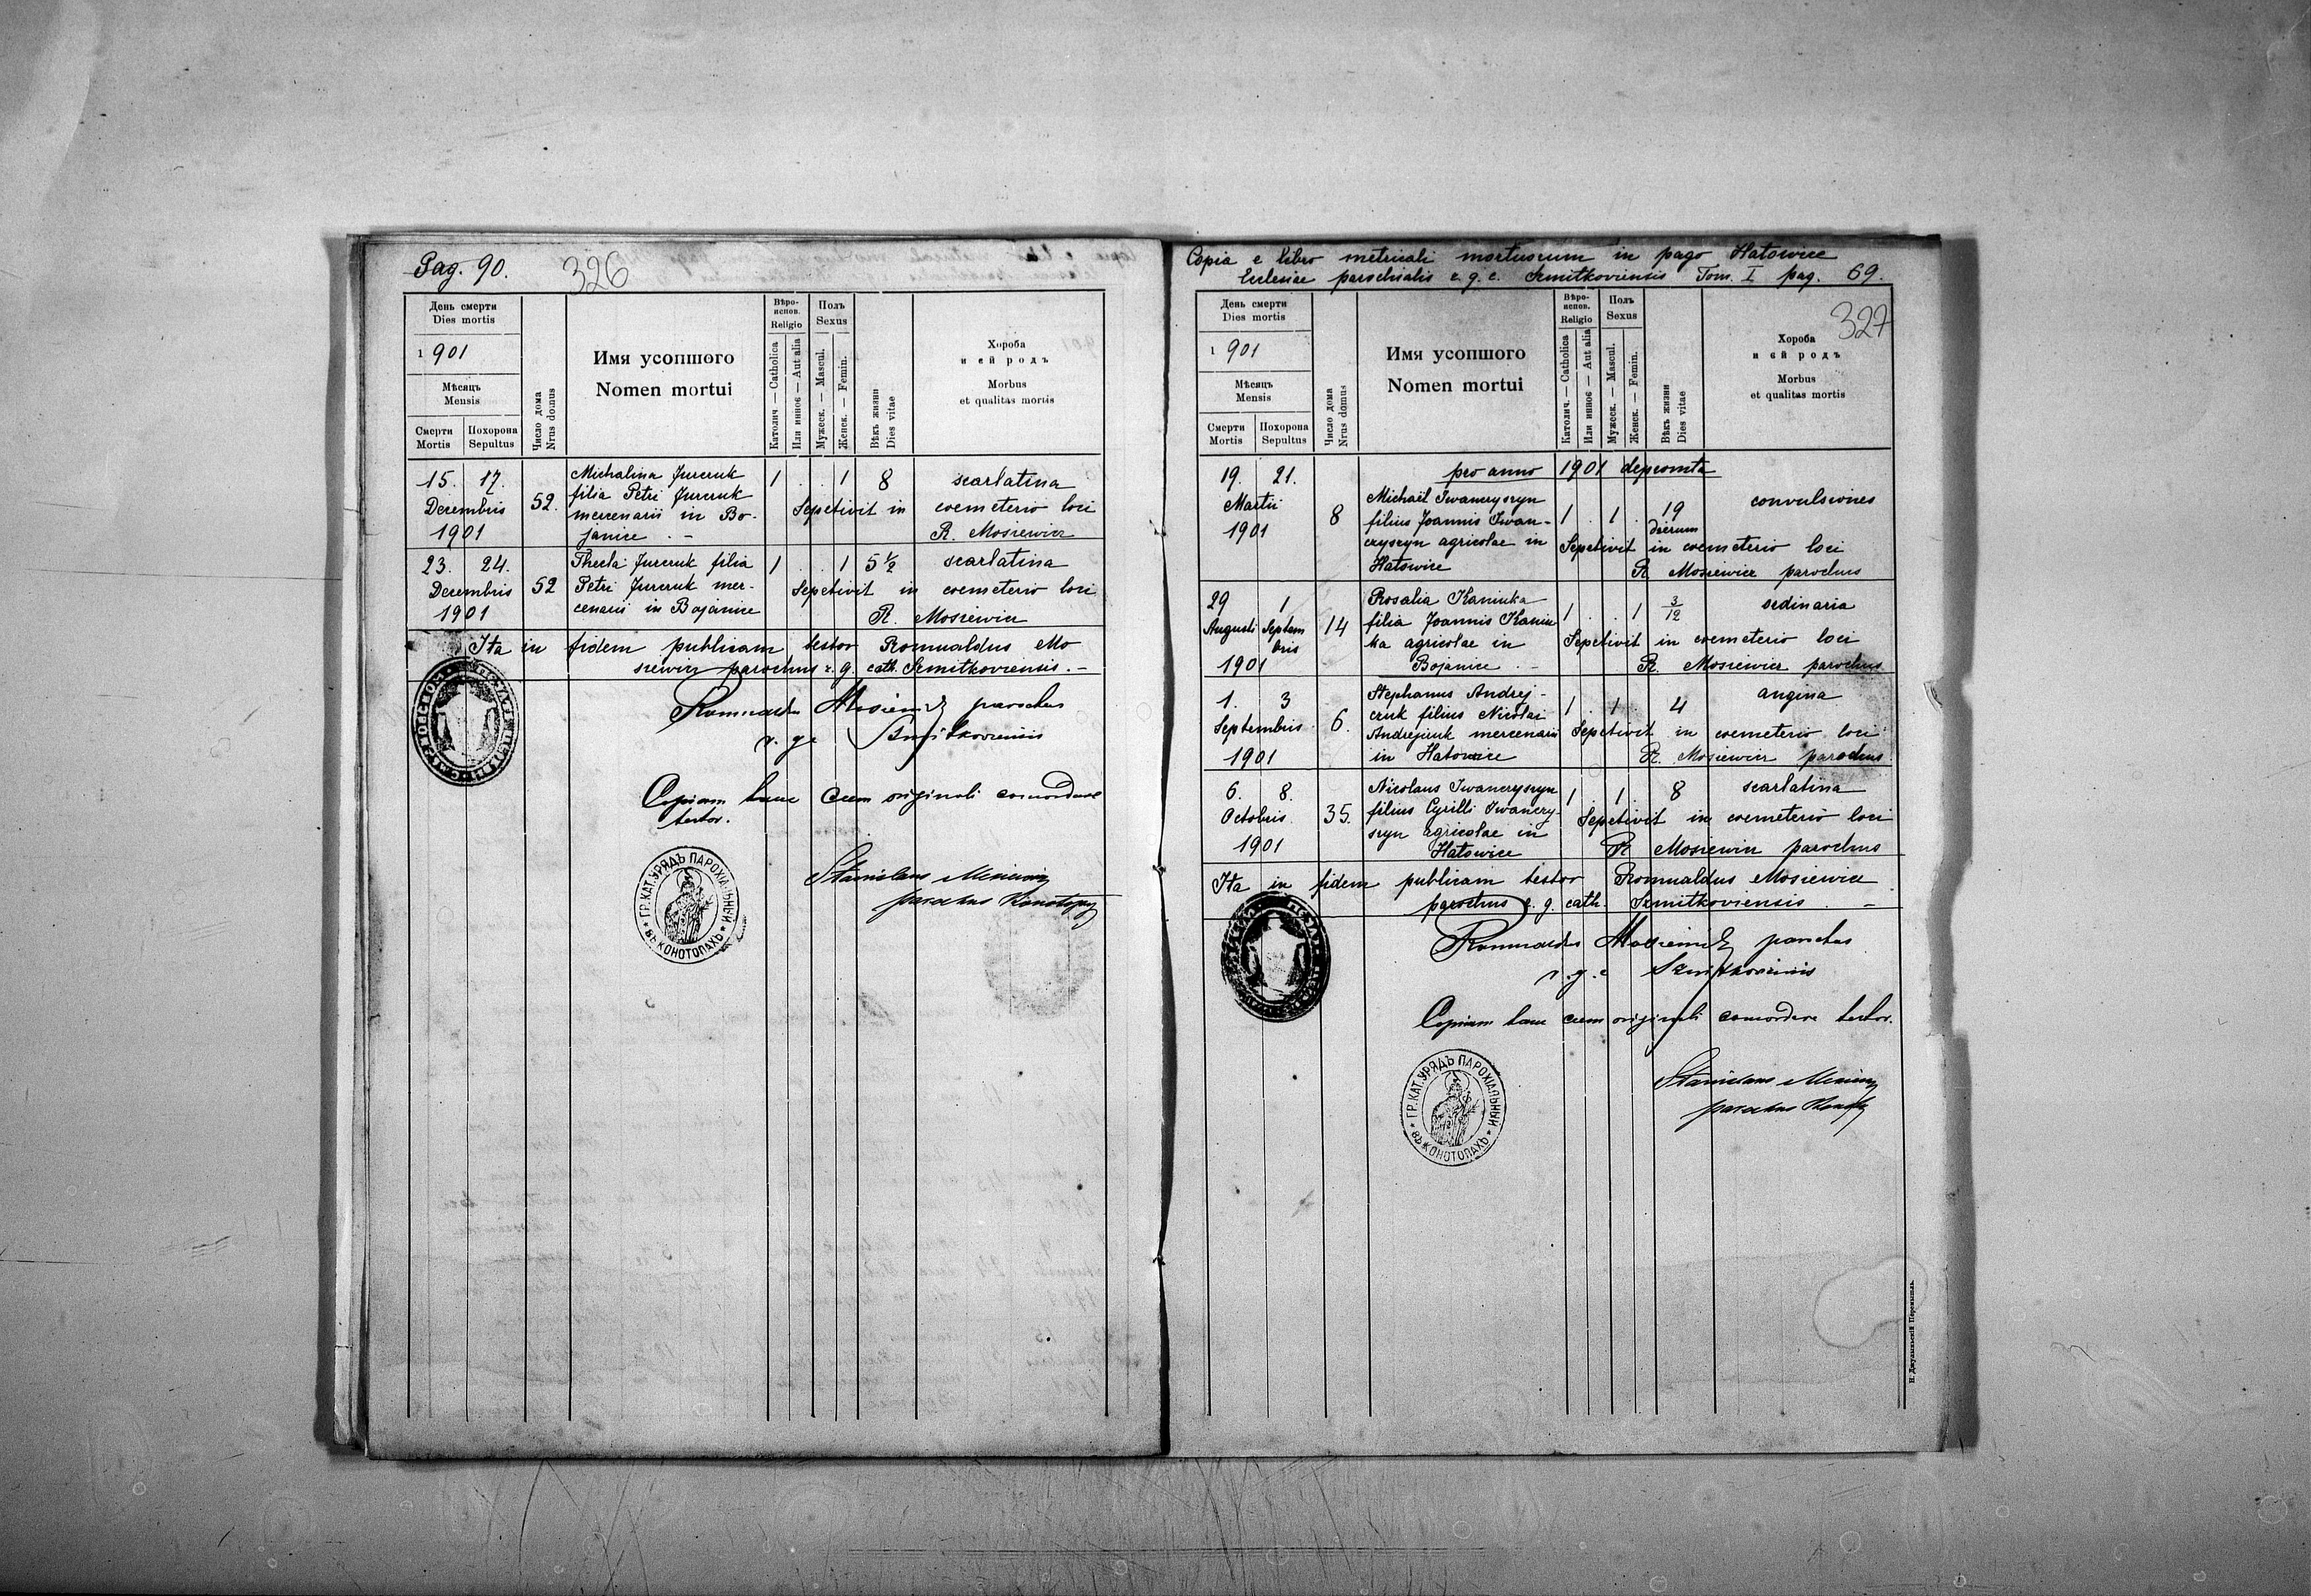 Pag. 90.
326
День смерти
Dies mortis
1901
Мѣсяцъ
Mensis
Смерти
Mortis
Похорона
Sepultus
Число дома
Nrus domus
Имя усопшого
Nomen mortui
Вѣро-
испов.
Religio
Католич. — Catholica
Или инное — Aut alia
Полъ
Sexus
Мужеск. — Mascul.
Женск. — Femin.
Вѣкъ жизни
Dies vitae
Хороба
и ей родъ
Morbus
et qualitas mortis
15. 17. Michalina Jurcruk 1 . . 1 8 scarlatina
Decembris 52. filia Petri Jurcruk Sepelivit in coemeterio loci
1901 mercenarii in Bo-
janice . – R. Mosiewicz
23. 24. Thecla Jurcruk filia 1 . . 1 5 ½ scarlatina
Decembris 52 Petri Jurcruk mer- Sepelivit in coemeterio loci
1901 cenarii in Bojanice R. Mosiewicz
Ita in fidem publicam testor Romualdus Mo
siewicz parochus r. g. cath. Szmitkoviensis. –
Romualdus Mosiewicz parochus
r. g. c Szmitkoviensis
Copiam hanc cum originali concordare
testor.
Stanislaus
parochus Konotopy
ГР. КАТ. УРЯДЪ ПАРОХІАЛЬНЫЙ
ВЪ КОНОТОПАХЪ
Copia e libro metricali mortuorum in pago Hatowice
Ecclesiae parochialis r. g. c. Szmitkoviensis Tom. I pag. 69.
327
День смерти
Dies mortis
1901
Мѣсяцъ
Mensis
Смерти
Mortis
Похорона
Sepultus
Число дома
Nrus domus
Имя усопшого
Nomen mortui
Вѣро-
испов.
Religio
Католич. — Catholica
Или инное — Aut alia
Полъ
Sexus
Мужеск. — Mascul.
Женск. — Femin.
Вѣкъ жизни
Dies vitae
Хороба
и ей родъ
Morbus
et qualitas mortis
pro anno 1901 depromta
19. 21. Michaël Iwanczyszyn convulsiones
Martii 8 filius Joannis Iwan- 1 . 1 . 19 dierum
1901 czyszyn agricolae in Sepelivit in coemeterio loci
Hatowice R. Mosiewicz parochus
29 1 Rosalia Kaniuka 1 . . 1 3/12 ordinaria
Augusti Septem 14 filia Joannis Kaniu
bris ka agricolae in Sepelivit in coemeterio loci
1901 Bojanice . – R. Mosiewicz parochus
1. 3 Stephanus Andrej- 1 . 1 . 4 angina
Septembris 6. czuk filius Nicolai
Andrejczuk mercenarii Sepelivit in coemeterio loci
1901 in Hatowice R. Mosiewicz parochus
6. 8. Nicolaus Iwanczyszyn 1 . 1 . 8 scarlatina
Octobris 35. filius Cyrilli Iwanczy- Sepelivit in coemeterio loci
1901 szyn agricolae in
Hatowice R Mosiewicz parochus
Ita in fidem publicam testor Romualdus Mosiewicz
parochus r. g. cath. Szmitkoviensis . –
Romualdus Mosiewicz parochus
r. g. c Szmitkoviensis
Copiam hanc cum originali concordare testor.
Stanislaus
parochus
ГР. КАТ. УРЯДЪ ПАРОХІАЛЬНЫЙ
ВЪ КОНОТОПАХЪ
Н. Джулынскій Перемышль.